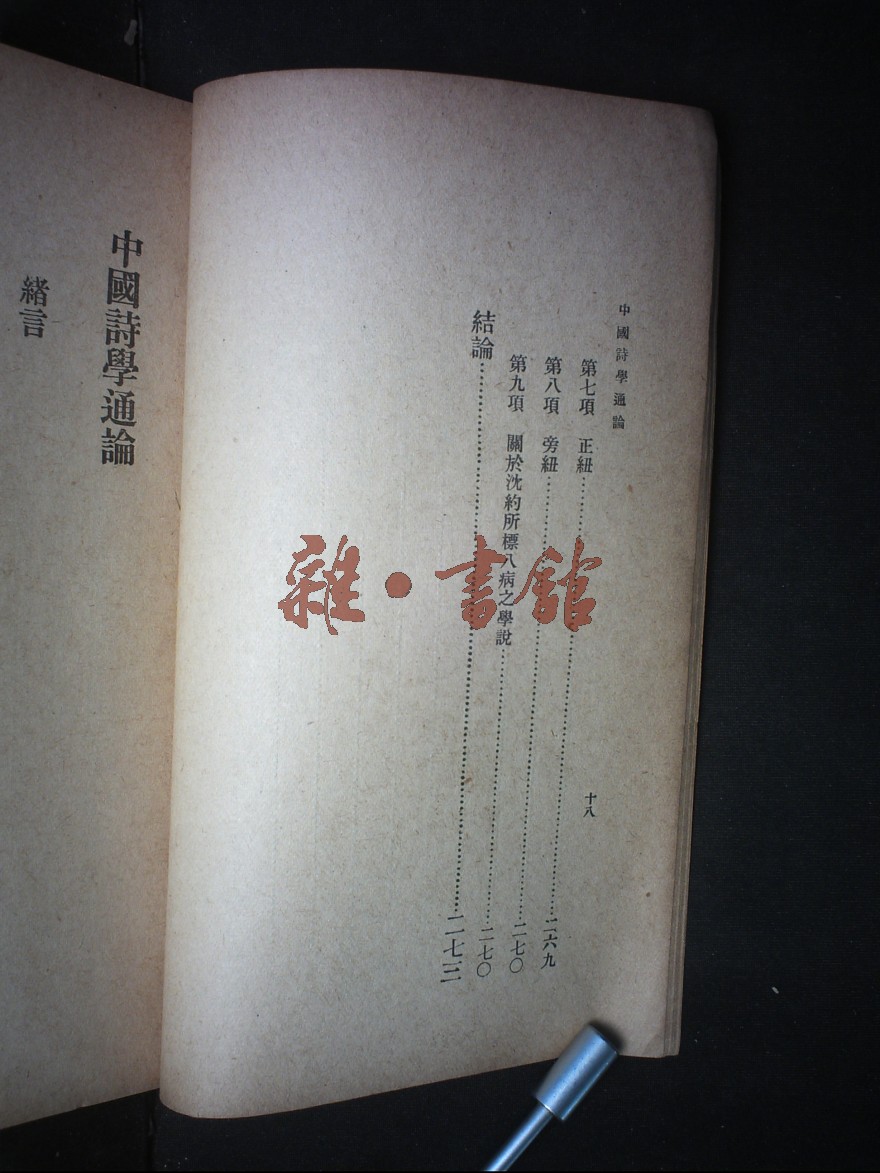 中國詩學通論
十八
第七項　正紐……二六九
第八項　旁紐……二七〇
第九項　關於沈約所標八病之學說……二七〇
結論……二七三
中國詩學通論
緒言
雜·書館